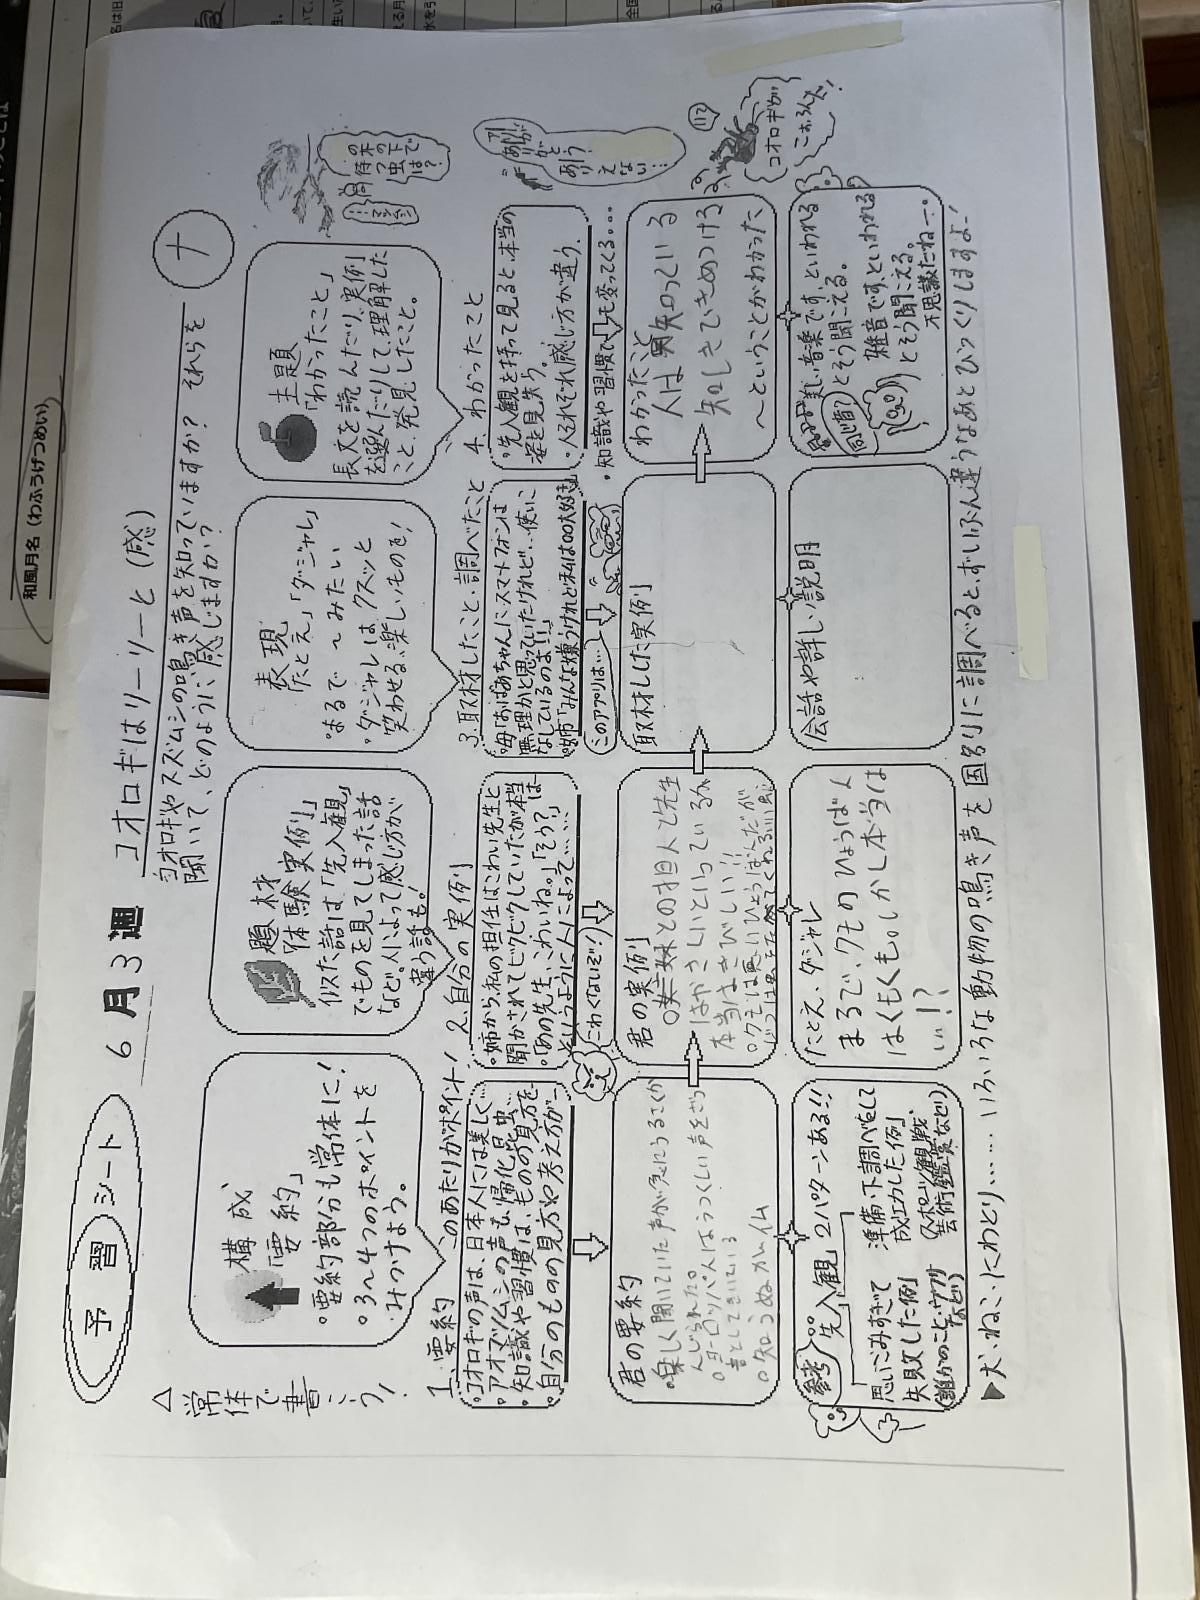 予習シート
6月3週
コオロギはリーリーと (感)
ナ
コオロギやスズムシの鳴き声を知っていますか? それらを
聞いて、どのように感じますか?
△常体で書こう!
構成
「要約」
。要約部分も常体に!
。3〜4つのポイントを
みつけよう。
題材
「体験実例」
似た話は「先入観」
でものを見てしまった話
など。人によって感じ方が
違う話も!
表現
「たとえ」「ダジャレ」
・まるで〜みたい
・ダジャレは、クスッと
笑わせる、楽しいものを!
主題
「わかったこと」
長文を読んだり、実例
を選んだりして、理解した
こと、発見したこと。
1、要約 このあたりがポイント!
・コオロギの声は、日本人には美しく…
アオマツムシの声も、帰化昆虫…
・知識や習慣は、ものの見方を…
・自分のものの見方や考え方が…
2、自分の実例
・姉から、私の担任はこわい先生と
聞かされてビクビクしていたが本当
「あの先生、こわいね。」「そう?」
というように人によって……
こわくないぞ!
3、取材したこと・調べたこと
・母「おばあちゃんにスマートフォンは
無理かと思っていたけれど…使いこ
なしているのよ!!」
・姉「みんな嫌うけれど私は○○大好き
このアプリは…
4、わかったこと
・先入観を持って見ると、本当の
姿を見失う。
・人それぞれ感じ方が違う。
・知識や習慣でも変ってくる…
君の要約
。楽しく聞いていた声が急にうるさくか
んじられた。
。ヨーロッパ人はうつくしい声をざつ
音としてきいている
君の実例
本当はきびしい!!
取材した実例
わかったこと
人は知っている
知しきできめつける
〜ということがわかった
参考 先入観 2パターンある!!
思いこみすぎて
失敗した例
準備・下調べをして
成功した例
(スポーツ観戦、
芸術鑑賞など)
たとえ、ダジャレ
まるで、クモのひょうばん
はくもくもしかし本当は
いい!?
会話や詳しい説明
美しい音楽です、といわれる
とそう聞こえる。
同じ音?
雑音です、といわれる
とそう聞こえる。
不思議だねー。
コオロギが
▶犬・ねこ・にわとり…… いろいろな動物の鳴き声を国別に調べると、ずいぶん違うなあとびっくりしますよ!
和風月名(わふうげつめい)